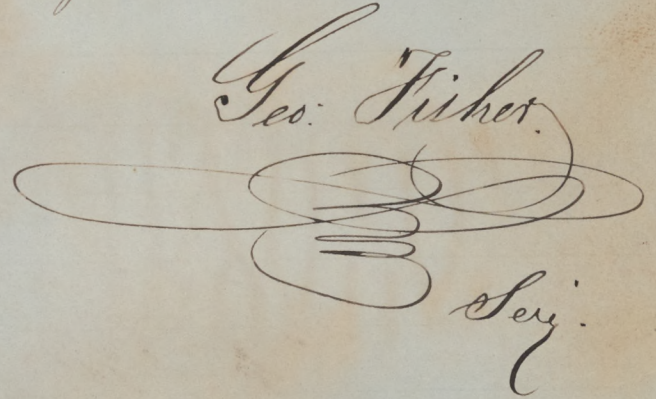 Geo: Fisher.
Secy.